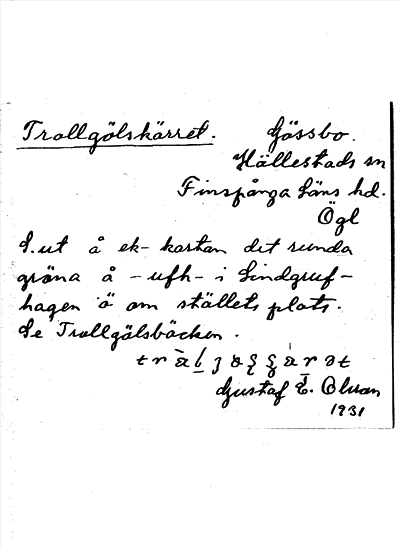 Trollgölskärret. Gössbo.
Hällestads sn
Finspånga läns hd.
Ögl
S.ut å ek-kartan det runda
gröna å -ufh- i Lindgruf-
hagen ö om ställets plats.
Se Trollgölsbäcken.
Gustaf E. Olsson
1931